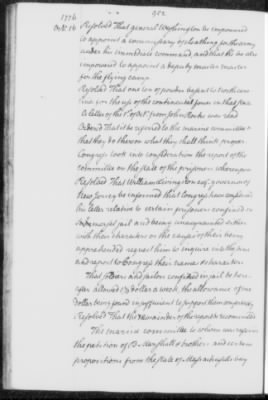 952
1776
Oct. 16 Resolved That general Washington be impowered
to appoint a commissary of cloathing for the army
under his immediate command, and that he be also
impowered to appoint a deputy muster master
for the flying camp
Resolved That one ton of powder be sent to
for the use of the continental
A letter of the 1st of Oct. from John was read
Ordered That it be referred to the marine committee &
that they do thereon what they shall think proper
Congress took into consideration the report of the
committee on the state of the prisoners whereupon
Resolved That William Livingston esqr. governor of
New Jersey be informed that Congress have examined
his letter relative to certain prisoners confined in
jail and being unacquainted either
with their characters or the causes of their being
apprehended request him to enquire into the same
and report to Congress their names & characters
That soldiers and sailors confined in jail be here-
after allowed 1⅓ dollar a week, the allowance of one
Dollar being found insufficient to support them
Resolved That the remainder of the report be recommitted.
The marine committee to whom were referred
the petition of B. Marshall & brother and certain
propositions from the state of Massachusetts bay